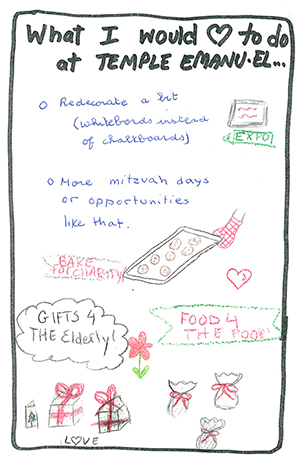 What I would ♡ to do
at TEMPLE EMANU-EL...
Redecorate a bit
(whitebords instead
of chalkboards)
EXPO!
More mitzvah days
or opportunities
like that.
BAKE
FOR CHARITY!
GIFTS 4
THE Elderly!
FOOD 4
THE POOR!
L♡VE